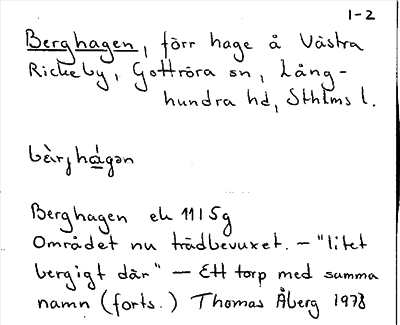 1-2
Berghagen, förr hage å Västra
Rickeby, Gottröra sn, Lång-
hundra hd, Sthlms l.
bær̀jhágən
Berghagen ek 11I5g
Området nu trädbevuxet. – "litet
bergigt där" – Ett torp med samma
namn (forts.) Thomas Åberg 1978